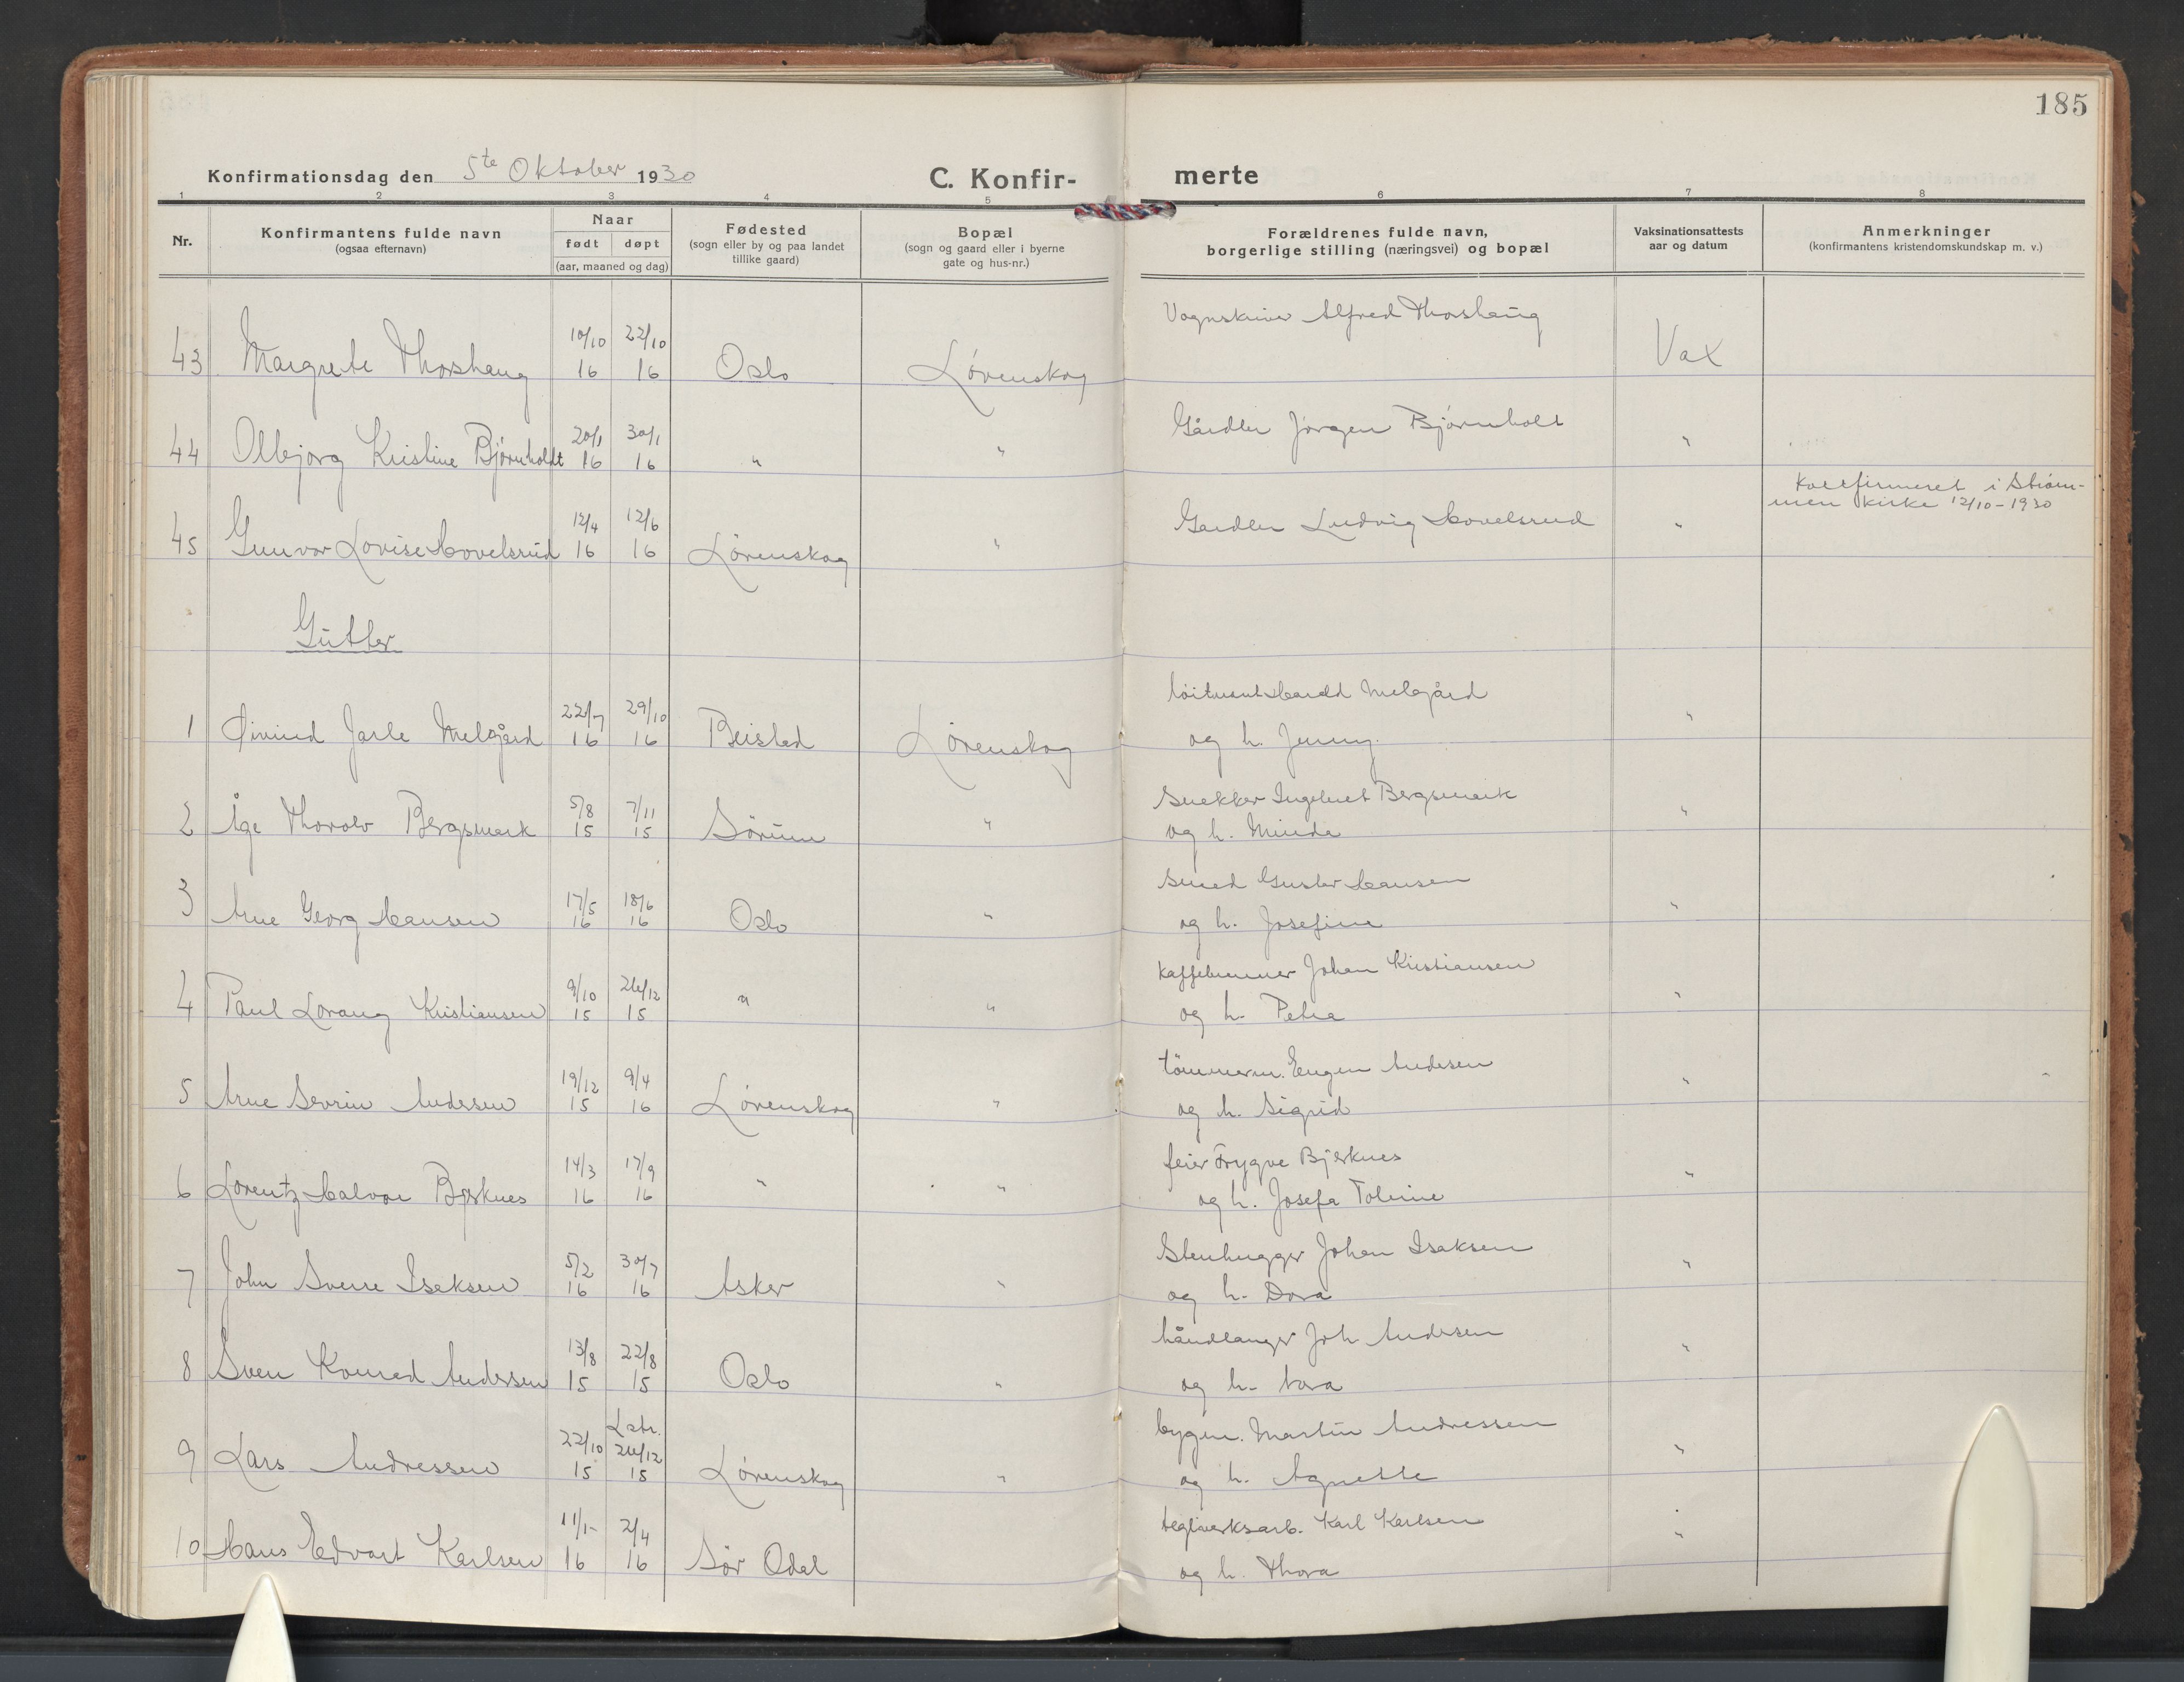 185
Konfirmationsdag den 5te Oktober 1930
C. Konfir- merte
1 2 3 4 5 6 7 8
Nr.
Konfirmantens fulde navn
(ogsaa efternavn)
Naar
født døpt
(aar, maaned og dag)
Fødested
(sogn eller by og paa landet
tillike gaard)
Bopæl
(sogn og gaard eller i byerne
gate og hus-nr.)
Forældrenes fulde navn,
borgerlige stilling (næringsvei) og bopæl
Vaksinationsattests
aar og datum
Anmerkninger
(konfirmantens kristendomskundskap m. v.)
10/10 22/10 Vognskriver Alfred Thorshaug
43 Margrete Thorshaug 16 16 Oslo Lørenskog Vax
20/1 30/1 Gårdbr Jørgen Bjørnholt
44 Olbjørg Kristine Bjørnholdt 16 16 " " "
Konfirmeret i Strøm-
men kirke 12/10-1930
12/4 12/6 Gaardbr Ludvig Hovelsrud "
45 Gunvor Lovise Hovelsrud 16 16 Lørenskog "
Gutter
22/7 29/10 løitnant Harald Melgård "
1 Øivind Jarle Melgård 16 16 Beistad Lørenskog og h. Jenny.
5/8 7/11 Snekker Ingebret Bergsmark "
2 Åge Thorolv Bergsmark 15 15 Sørum " og h. Minda
17/5 18/6 Smed Gustav Hansen "
3 Arne Georg Hansen 16 16 Oslo " og h. Josefine
9/10 26/12 kaffebrenner Johan Kristiansen "
4 Paul Lorang Kristiansen 15 15 " " og h. Petra
19/12 9/4 tömmerm. Eugen Andersen "
5 Arne Sevrin Andersen 15 16 Lørenskog " og h. Sigrid
14/3 17/9 feier Trygve Bjerknes "
6 Lorentz Halvor Bjerknes 16 16 " " og h. Josefa Toline
5/2 30/7 Stenhugger Johan Isaksen "
7 John Sverre Isaksen 16 16 Asker " og h. Dora
13/8 22/8 håndlanger Joh Andersen "
8 Sven Konrad Andersen 15 15 Oslo " og h. Nora
Latr.
22/10 26/12 bygm. Martin Andressen "
9 Lars Andressen 15 15 Lørenskog " og h. Agnette
11/1 2/4 teglverksarb. Karl Karlsen "
10 Hans Edvart Karlsen 16 16 Sør Odal og h. Thora